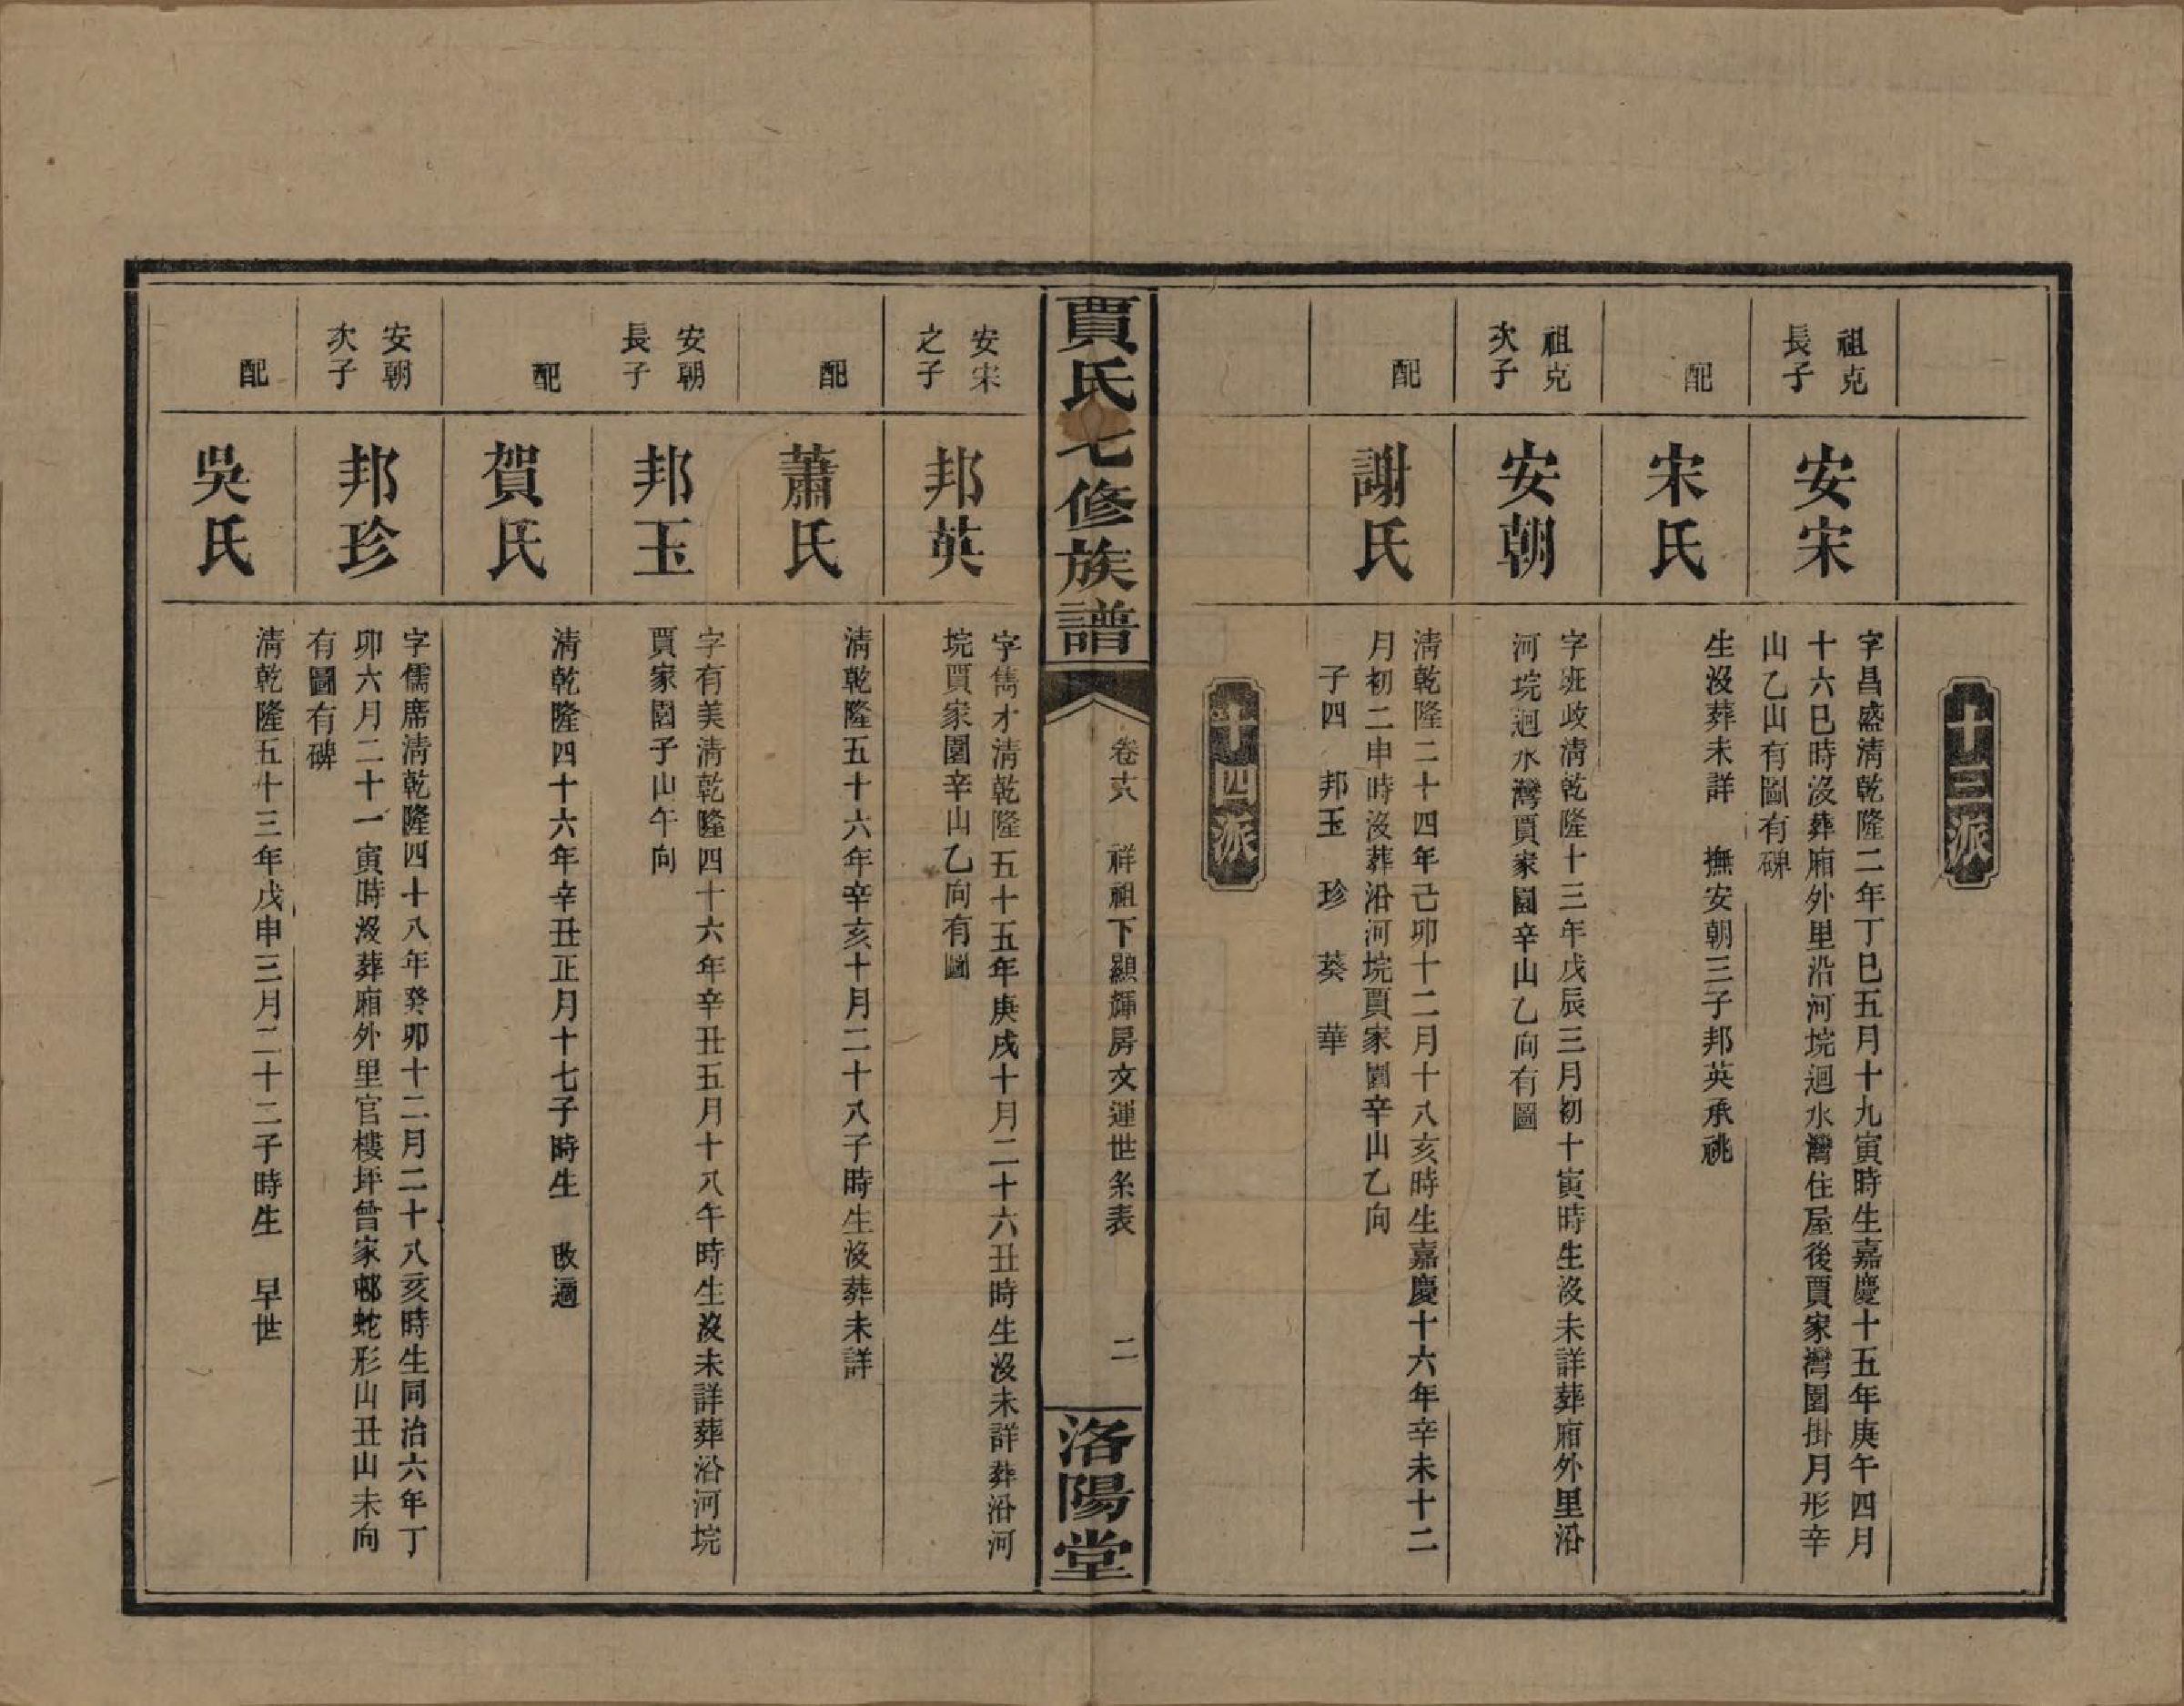 十三派
祖克
長子
安宋
字昌盛清乾隆二年丁巳五月十九寅時生嘉慶十五年庚午四月
十六巳時沒葬廂外里沿河垸迴水灣住屋後賈家灣園掛月形辛
山乙山有圖有碑
配
宋氏
生沒葬未詳　撫安朝三子邦英承祧
祖克
次子
安朝
字班政清乾隆十三年戊辰三月初十寅時生沒未詳葬廂外里沿
河垸迴水灣賈家園辛山乙向有圖
配
謝氏
清乾隆二十四年己卯十二月十八亥時生嘉慶十六年辛未十二
月初二申時沒葬沿河垸賈家園辛山乙向
子四　邦玉　珍　葵　華
十四派
賈氏七修族譜
卷十六　祥祖下顯輝房文運世系表　二
洛陽堂
安宋
之子
邦英
字儁才清乾隆五十五年庚戌十月二十六丑時生沒未詳葬沿河
垸賈家園辛山乙向有圖
配
蕭氏
清乾隆五十六年辛亥十月二十八子時生沒葬未詳
安朝
長子
邦玉
字有美清乾隆四十六年辛丑五月十八午時生沒未詳葬沿河垸
賈家園子山午向
配
賀氏
清乾隆四十六年辛丑正月十七子時生　改適
安朝
次子
邦珍
字儒席清乾隆四十八年癸卯十二月二十八亥時生同治六年丁
卯六月二十一寅時沒葬廂外里官樓坪曾家邨蛇形山丑山未向
有圖有碑
配
吳氏
清乾隆五十三年戊申三月二十二子時生　早世